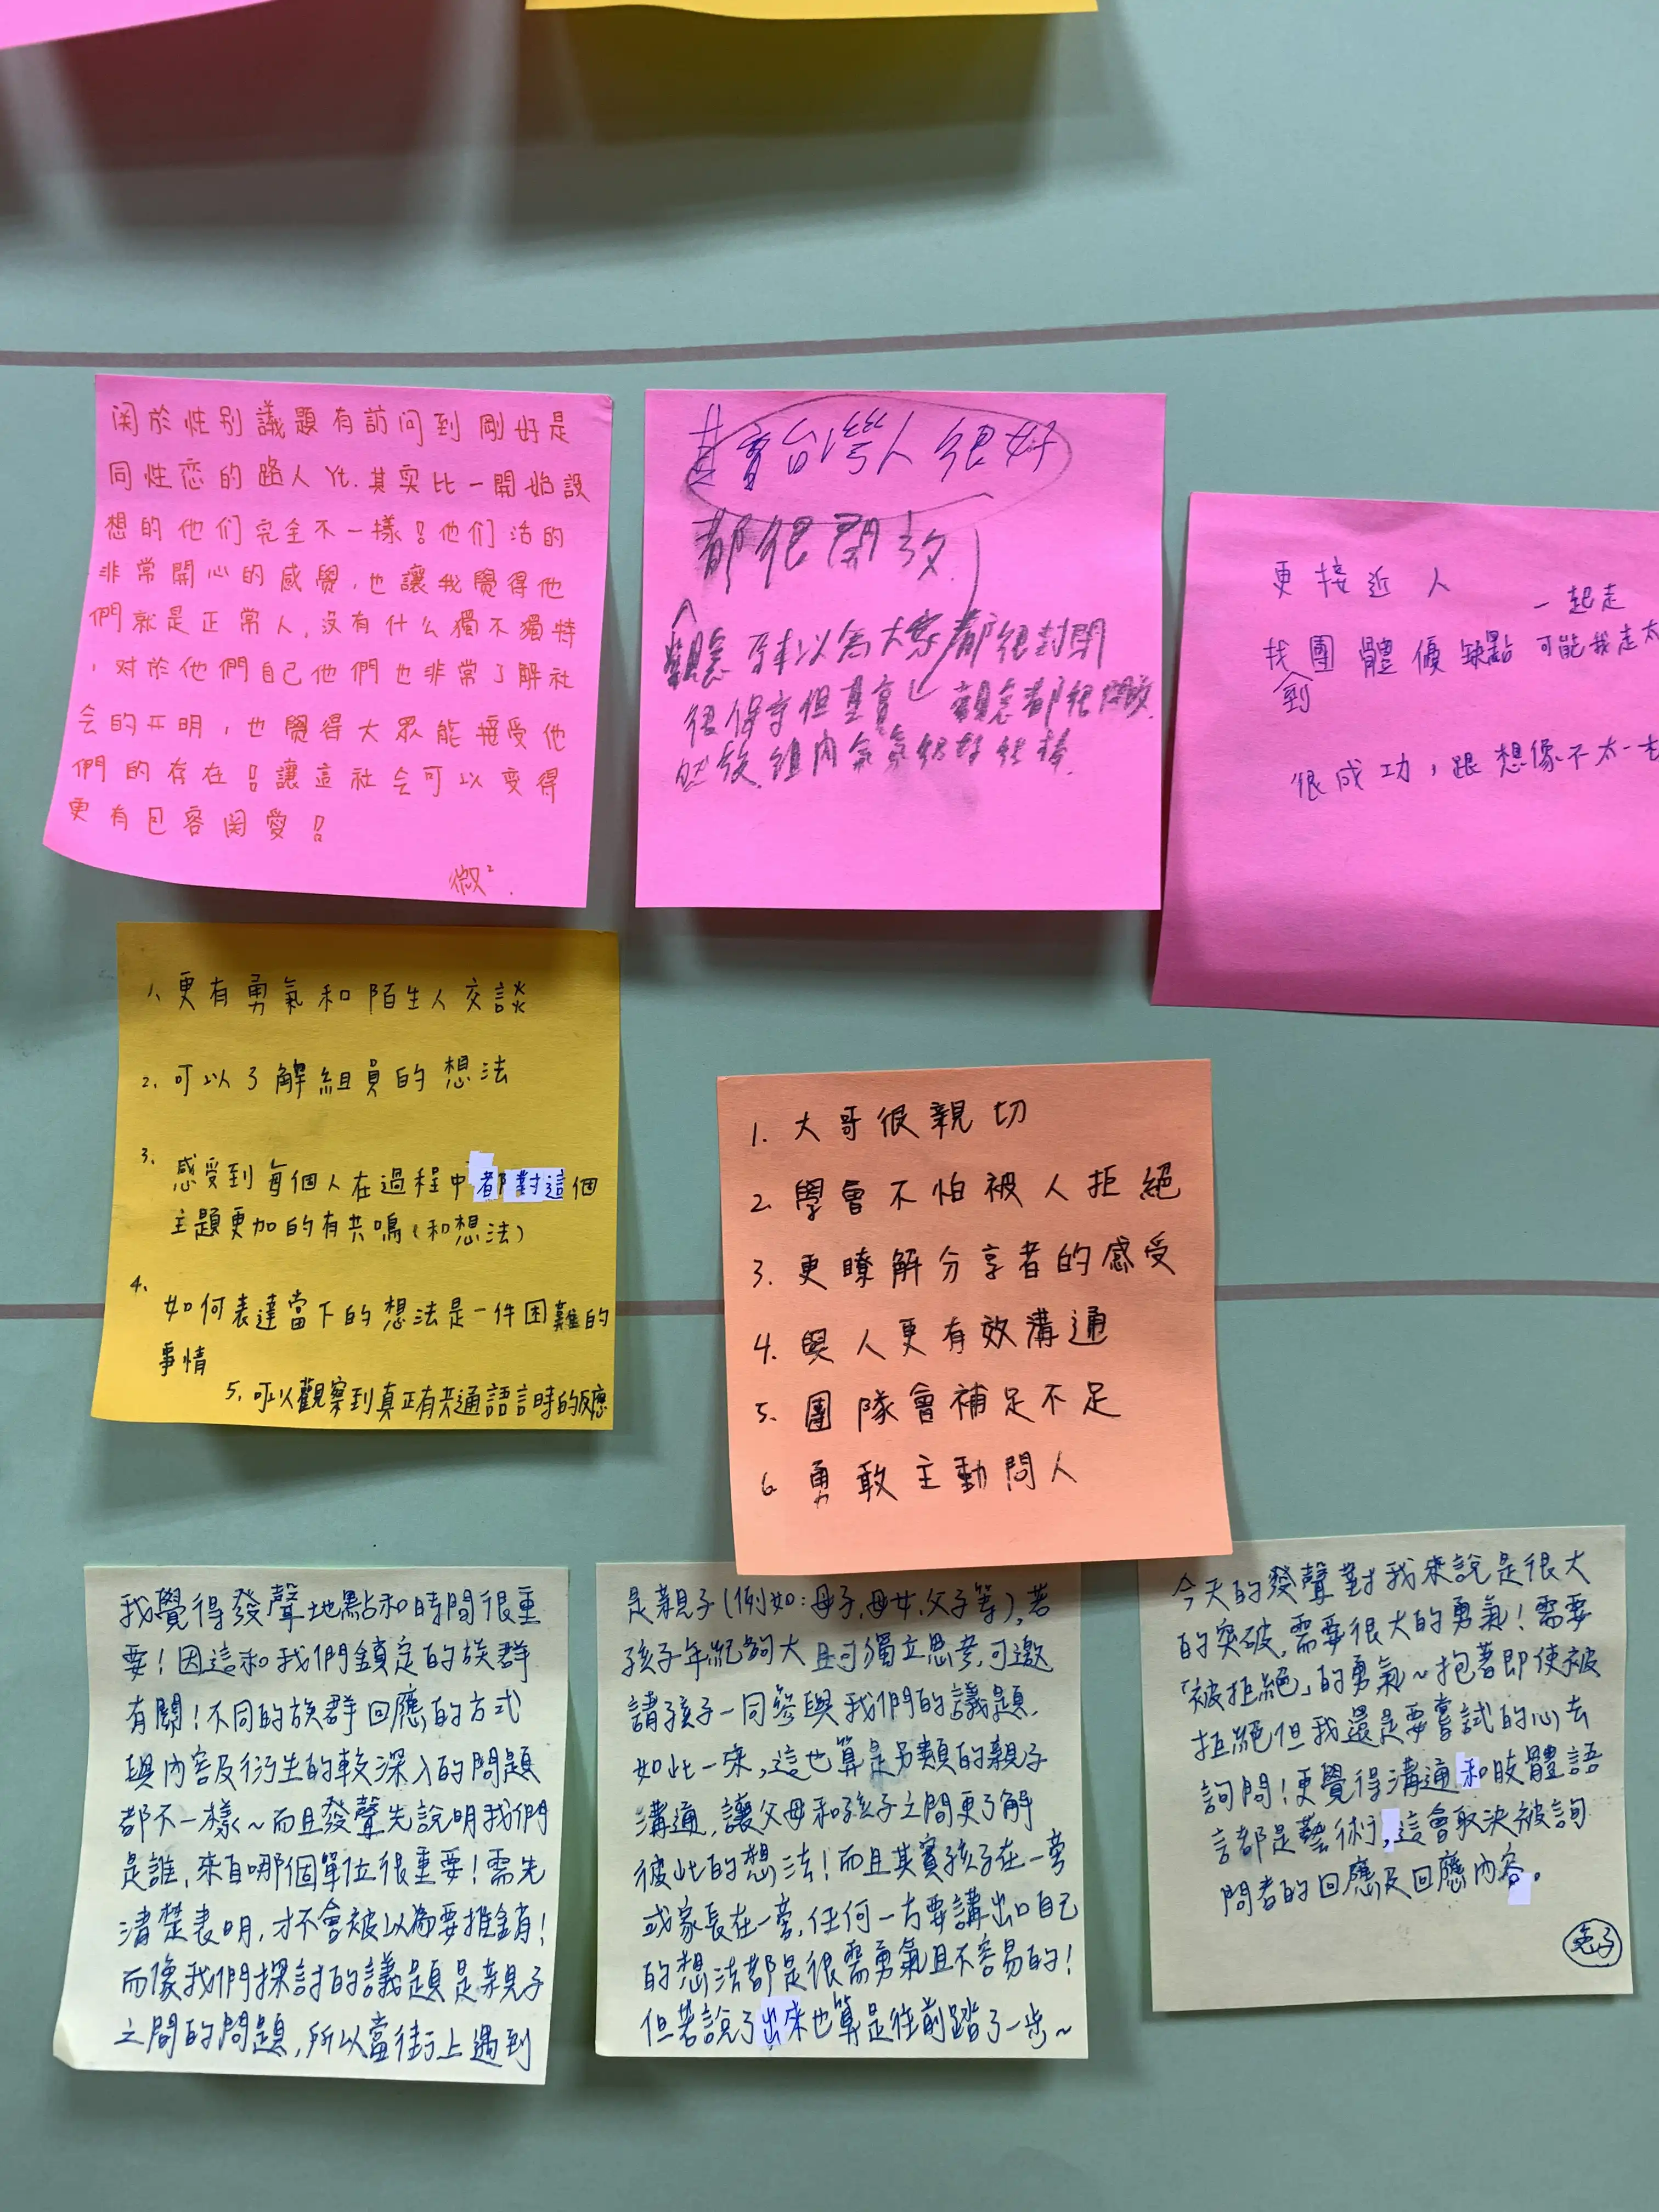 関於性别議題有訪问到剛好是
同性恋的路人Yt.其实比一開始設
想的他们完全不一樣!他们活的
非常開心的感覺,也讓我覺得他
們就是正常人,沒有什么獨不獨特
,对於他們自己他們也非常了解社
会的开明,也覺得大眾能接受他
們的存在!讓這社会可以变得
更有包容関愛!
微²
其實台灣人很好
都很開放
觀念 原本以為大家都很封閉
很保守但其實 觀念都很開放
組內氣氛很好很棒.
更接近人
一起走
找到團體優缺點 可能我走太
很成功,跟想像不太一
1、更有勇氣和陌生人交談
2、可以了解組員的想法
3、感受到每個人在過程中都對這個
主題更加的有共鳴(和想法)
4、如何表達當下的想法是一件困難的
事情
5、可以觀察到真正有共通語言時的反應
1. 大哥很親切
2. 學會不怕被人拒絕
3. 更瞭解分享者的感受
4. 與人更有效溝通
5. 團隊會補足不足
6. 勇敢主動問人
我覺得發聲地點和時間很重
要!因這和我們鎖定的族群
有關!不同的族群回應的方式
與內容及衍生的較深入的問題
都不一樣~而且發聲先說明我們
是誰,來自哪個單位很重要!需先
清楚表明,才不會被以為要推銷!
而像我們探討的議題是親子
之間的問題,所以當街上遇到
是親子(例如:母子、母女、父子等),若
孩子年紀夠大且可獨立思考,可邀
請孩子一同參與我們的議題.
如此一來,這也算是另類的親子
溝通,讓父母和孩子之間更了解
彼此的想法!而且其實孩子在一旁
或家長在一旁,任何一方要講出口自己
的想法都是很需勇氣且不容易的!
但若說了出來也算是往前踏了一步~
今天的發聲對我來說是很大
的突破,需要很大的勇氣!需要
「被拒絕」的勇氣~抱著即使被
拒絕但我還是要嘗試的心去
詢問!更覺得溝通和肢體語
言都是藝術,這會取決被詢
問者的回應及回應內容。
兔子